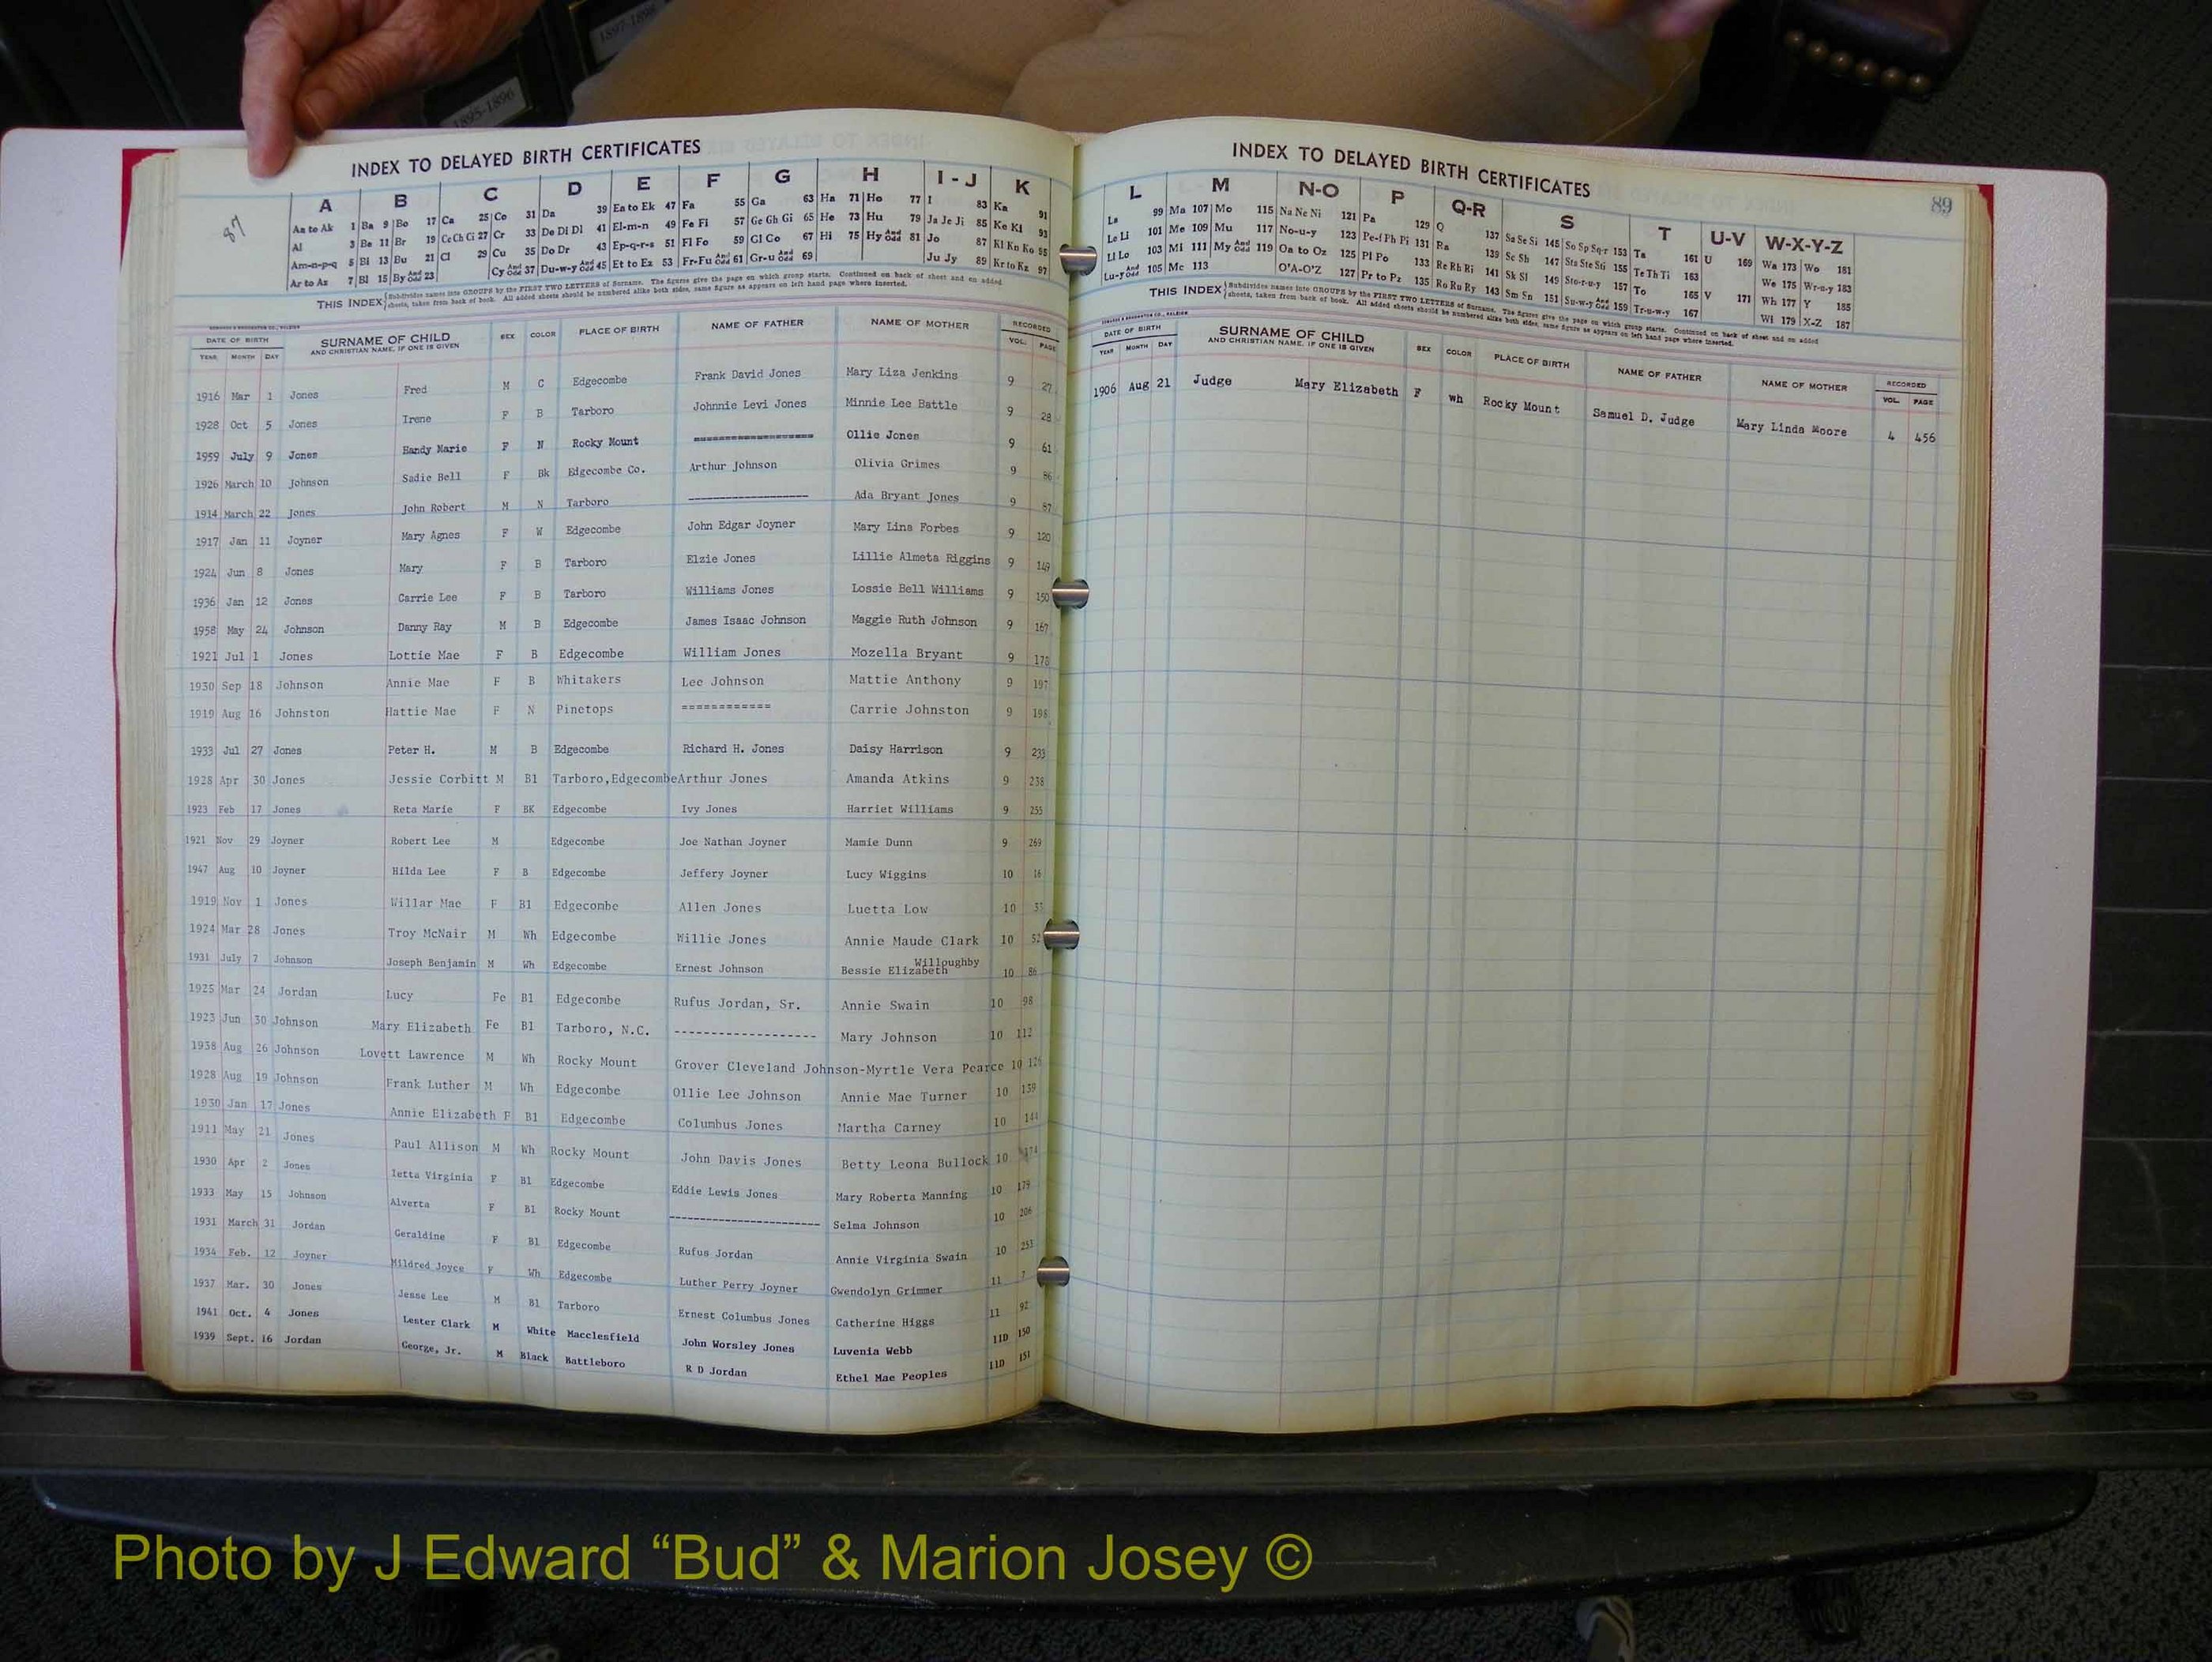 1897-1898
1895-1896
87
INDEX TO DELAYED BIRTH CERTIFICATES
A B C D E F G H I - J K
Aa to Ak 1 Ba 9 Bo 17 Ca 25 Co 31 Da 39 Ea to Ek 47 Fa 55 Ga 63 Ha 71 Ho 77 I 83 Ka 91
Al 3 Be 11 Br 19 Ce Ch Ci 27 Cr 33 De Di Dl 41 El-m-n 49 Fe Fi 57 Ge Gh Gi 65 He 73 Hu 79 Ja Je Ji 85 Ke Ki 93
Am-n-p-q 5 Bi 13 Bu 21 Cl 29 Cu 35 Do Dr 43 Ep-q-r-s 51 Fl Fo 59 Gl Go 67 Hi 75 Hy And Odd 81 Jo 87 Kl Kn Ko 95
Ar to Az 7 Bl 15 By And Odd 23 Cy And Odd 37 Du-w-y And Odd 45 Et to Ez 53 Fr-Fu And Odd 61 Gr-u And Odd 69 Ju Jy 89 Kr to Kz 97
THIS INDEX Subdivides names into GROUPS by the FIRST TWO LETTERS of Surname. The figures give the page on which group starts. Continued on back of sheet and on added
sheets, taken from back of book. All added sheets should be numbered alike both sides, same figure as appears on left hand page where inserted.
DATE OF BIRTH SURNAME OF CHILD AND CHRISTIAN NAME, IF ONE IS GIVEN SEX COLOR PLACE OF BIRTH NAME OF FATHER NAME OF MOTHER RECORDED
YEAR MONTH DAY VOL. PAGE
1916 Mar 1 Jones Fred M C Edgecombe Frank David Jones Mary Liza Jenkins 9 27
1928 Oct 5 Jones Irene F B Tarboro Johnnie Levi Jones Minnie Lee Battle 9 28
1959 July 9 Jones Handy Marie F N Rocky Mount =================== Ollie Jones 9 61
1926 March 10 Johnson Sadie Bell F Bk Edgecombe Co. Arthur Johnson Olivia Grimes 9 86
1914 March 22 Jones John Robert M N Tarboro ------------------- Ada Bryant Jones 9 87
1917 Jan 11 Joyner Mary Agnes F W Edgecombe John Edgar Joyner Mary Lina Forbes 9 120
1924 Jun 8 Jones Mary F B Tarboro Elzie Jones Lillie Almeta Riggins 9 149
1936 Jan 12 Jones Carrie Lee F B Tarboro Williams Jones Lossie Bell Williams 9 150
1958 May 24 Johnson Danny Ray M B Edgecombe James Isaac Johnson Maggie Ruth Johnson 9 167
1921 Jul 1 Jones Lottie Mae F B Edgecombe William Jones Mozella Bryant 9 178
1930 Sep 18 Johnson Annie Mae F B Whitakers Lee Johnson Mattie Anthony 9 197
1919 Aug 16 Johnston Hattie Mae F N Pinetops ============ Carrie Johnston 9 198
1933 Jul 27 Jones Peter H. M B Edgecombe Richard H. Jones Daisy Harrison 9 233
1928 Apr 30 Jones Jessie Corbitt M Bl Tarboro,Edgecombe Arthur Jones Amanda Atkins 9 238
1923 Feb 17 Jones Reta Marie F BK Edgecombe Ivy Jones Harriet Williams 9 255
1921 Nov 29 Joyner Robert Lee M Edgecombe Joe Nathan Joyner Mamie Dunn 9 269
1947 Aug 10 Joyner Hilda Lee F B Edgecombe Jeffery Joyner Lucy Wiggins 10 16
1919 Nov 1 Jones Willar Mae F Bl Edgecombe Allen Jones Luetta Low 10
1924 Mar 28 Jones Troy McNair M Wh Edgecombe Willie Jones Annie Maude Clark 10 52
1931 July 7 Johnson Joseph Benjamin M Wh Edgecombe Ernest Johnson Bessie Elizabeth Willoughby 10 86
1925 Mar 24 Jordan Lucy Fe Bl Edgecombe Rufus Jordan, Sr. Annie Swain 10 98
1923 Jun 30 Johnson Mary Elizabeth Fe Bl Tarboro, N.C. ----------------- Mary Johnson 10 112
1938 Aug 26 Johnson Lovett Lawrence M Wh Rocky Mount Grover Cleveland Johnson-Myrtle Vera Pearce 10 126
1928 Aug 19 Johnson Frank Luther M Wh Edgecombe Ollie Lee Johnson Annie Mae Turner 10 139
1930 Jan 17 Jones Annie Elizabeth F Bl Edgecombe Columbus Jones Martha Carney 10 144
1911 May 21 Jones Paul Allison M Wh Rocky Mount John Davis Jones Betty Leona Bullock 10 174
1930 Apr 2 Jones Ietta Virginia F Bl Edgecombe Eddie Lewis Jones Mary Roberta Manning 10 179
1933 May 15 Johnson Alverta F Bl Rocky Mount ----------------------- Selma Johnson 10 206
1931 March 31 Jordan Geraldine F Bl Edgecombe Rufus Jordan Annie Virginia Swain 10 253
1934 Feb. 12 Joyner Mildred Joyce F Wh Edgecombe Luther Perry Joyner Gwendolyn Grimmer 11 7
1937 Mar. 30 Jones Jesse Lee M Bl Tarboro Ernest Columbus Jones Catherine Higgs 11 92
1941 Oct. 4 Jones Lester Clark M White Macclesfield John Worsley Jones Luvenia Webb 11D 150
1939 Sept. 16 Jordan George, Jr. M Black Battleboro R D Jordan Ethel Mae Peoples 11D 151
INDEX TO DELAYED BIRTH CERTIFICATES
89
L M N-O P Q-R S T U-V W-X-Y-Z
La 99 Ma 107 Mo 115 Na Ne Ni 121 Pa 129 Q 137 Sa Se Si 145 So Sp Sq-r 153 Ta 161 U 169 Wa 173 Wo 181
Le Li 101 Me 109 Mu 117 No-u-y 123 Pe-f Ph Pi 131 Ra 139 Sc Sh 147 Sta Ste Sti 155 Te Th Ti 163 We 175 Wr-u-y 183
Ll Lo 103 Mi 111 My And Odd 119 Oa to Oz 125 Pl Po 133 Re Rh Ri 141 Sk Sl 149 Sto-r-u-y 157 To 165 V 171 Wh 177 Y 185
Lu-y And Odd 105 Mc 113 O'A-O'Z 127 Pr to Pz 135 Ro Ru Ry 143 Sm Sn 151 Su-w-y And Odd 159 Tr-u-w-y 167 Wi 179 X-Z 187
THIS INDEX Subdivides names into GROUPS by the FIRST TWO LETTERS of Surname. The figures give the page on which group starts. Continued on back of sheet and on added
sheets, taken from back of book. All added sheets should be numbered alike both sides, same figure as appears on left hand page where inserted.
DATE OF BIRTH SURNAME OF CHILD AND CHRISTIAN NAME, IF ONE IS GIVEN SEX COLOR PLACE OF BIRTH NAME OF FATHER NAME OF MOTHER RECORDED
YEAR MONTH DAY VOL. PAGE
1906 Aug 21 Judge Mary Elizabeth F wh Rocky Mount Samuel D. Judge Mary Linda Moore 4 456
Photo by J Edward “Bud” & Marion Josey ©